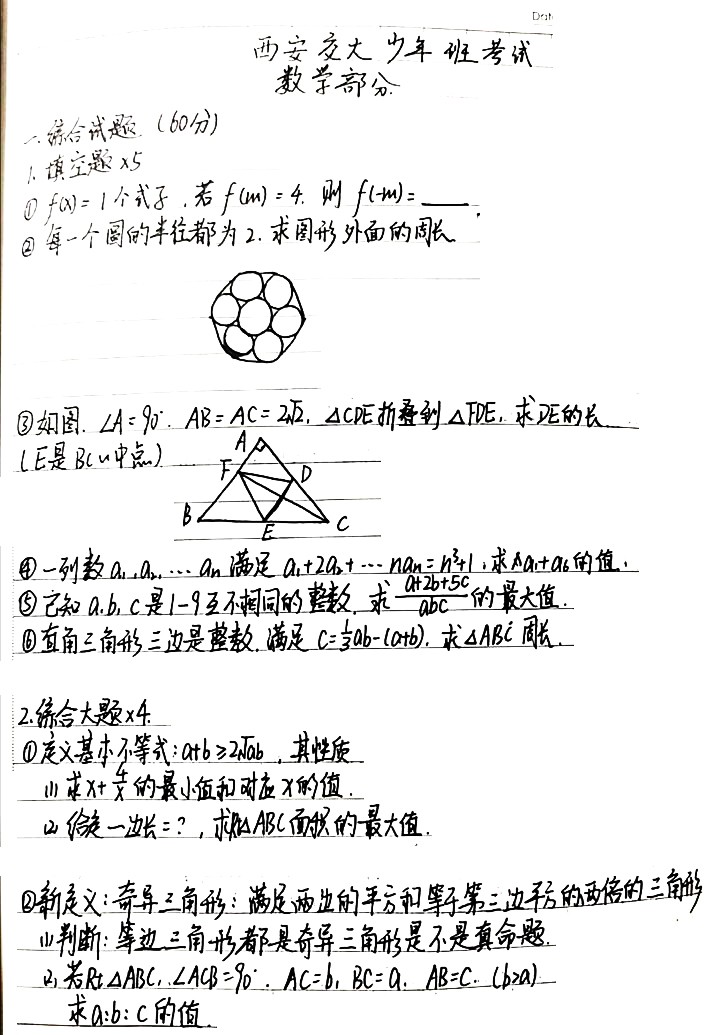 Dat
西安交大少年班考试
数学部分
一.综合试题.(60分)
1.填空题×5
① f(x)=1个式子.若f(m)=4.则f(-m)=____.
② 每一个圆的半径都为2.求图形外面的周长
③如图.∠A=90°.AB=AC=2√2.△CDE折叠到△FDE.求DE的长
(E是BC的中点)
A
F
D
B
E
C
④一列数a₁,a₂,…aₙ满足a₁+2a₂+…naₙ=n³+1.求a₁+a₆的值.
⑤已知a.b.c是1-9互不相同的整数.求(a+2b+5c)/(abc)的最大值.
⑥直角三角形三边是整数.满足c=⅓ab-(a+b).求△ABC周长.
2.综合大题×4.
①定义基本不等式:a+b≥2√ab,其性质
(1)求x+4/x的最小值和对应x的值.
(2)给定一边长=?,求Rt△ABC面积的最大值.
②新定义:奇异三角形:满足两边的平方和等于第三边平方的两倍的三角形
(1)判断:等边三角形都是奇异三角形是不是真命题.
(2)若Rt△ABC,∠ACB=90°.AC=b,BC=a.AB=c.(b>a)
求a:b:c的值.